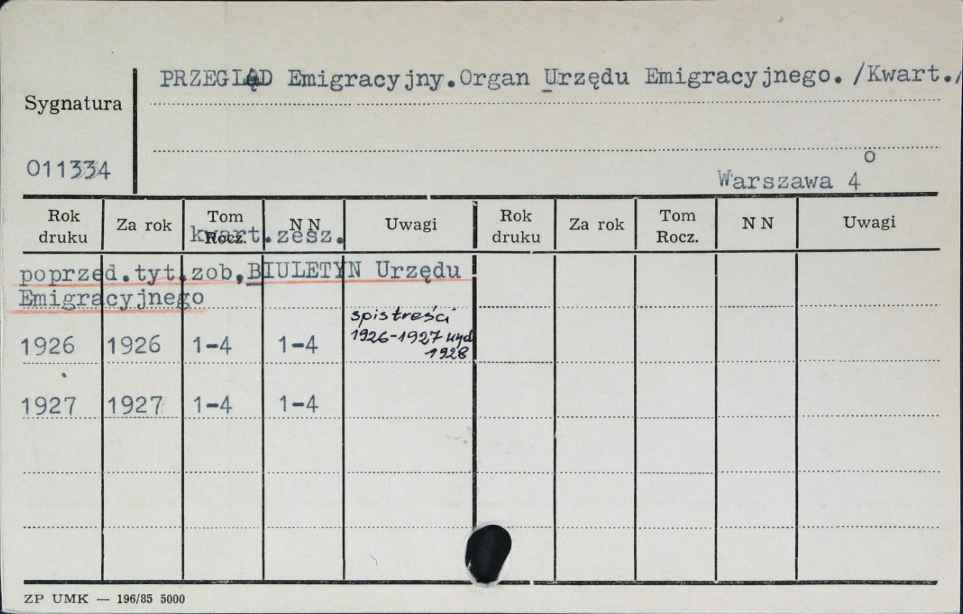 PRZEGLĄD Emigracyjny.Organ Urzędu Emigracyjnego. /Kwart./
Sygnatura
011334
Warszawa 4°
Rok druku Za rok Tom Rocz. N N Uwagi Rok druku Za rok Tom Rocz. N N Uwagi
kwart.zesz.
poprzed.tyt.zob,BIULETYN Urzędu
Emigracyjnego
1926 1926 1-4 1-4 spis treści
1926-1927 wyd
1928
1927 1927 1-4 1-4
ZP UMK — 196/85 5000